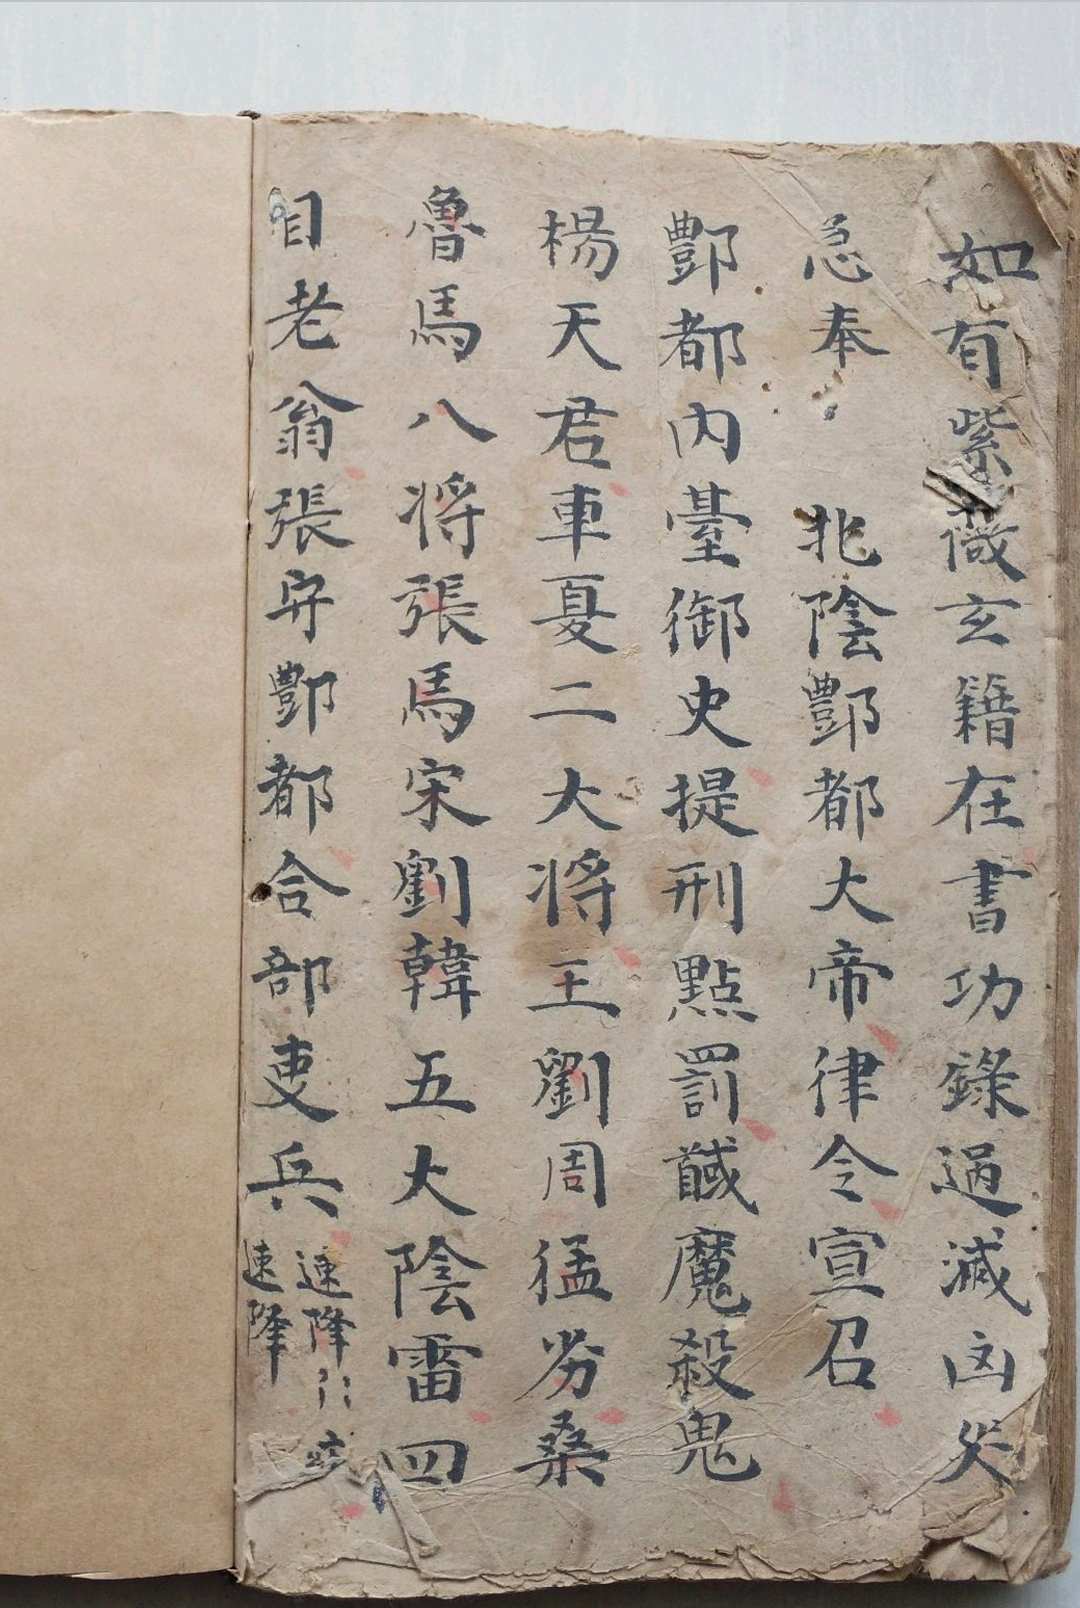 如有紫微玄籍在書功錄過滅凶災
急奉 北陰酆都大帝律令宣召
酆都內臺御史提刑點罰馘魔殺鬼
楊天君車夏二大將王劉周孟勞桑
魯馬八將張馬宋劉韓五大陰雷四
目老翁張守酆都合部吏兵
速降
速降